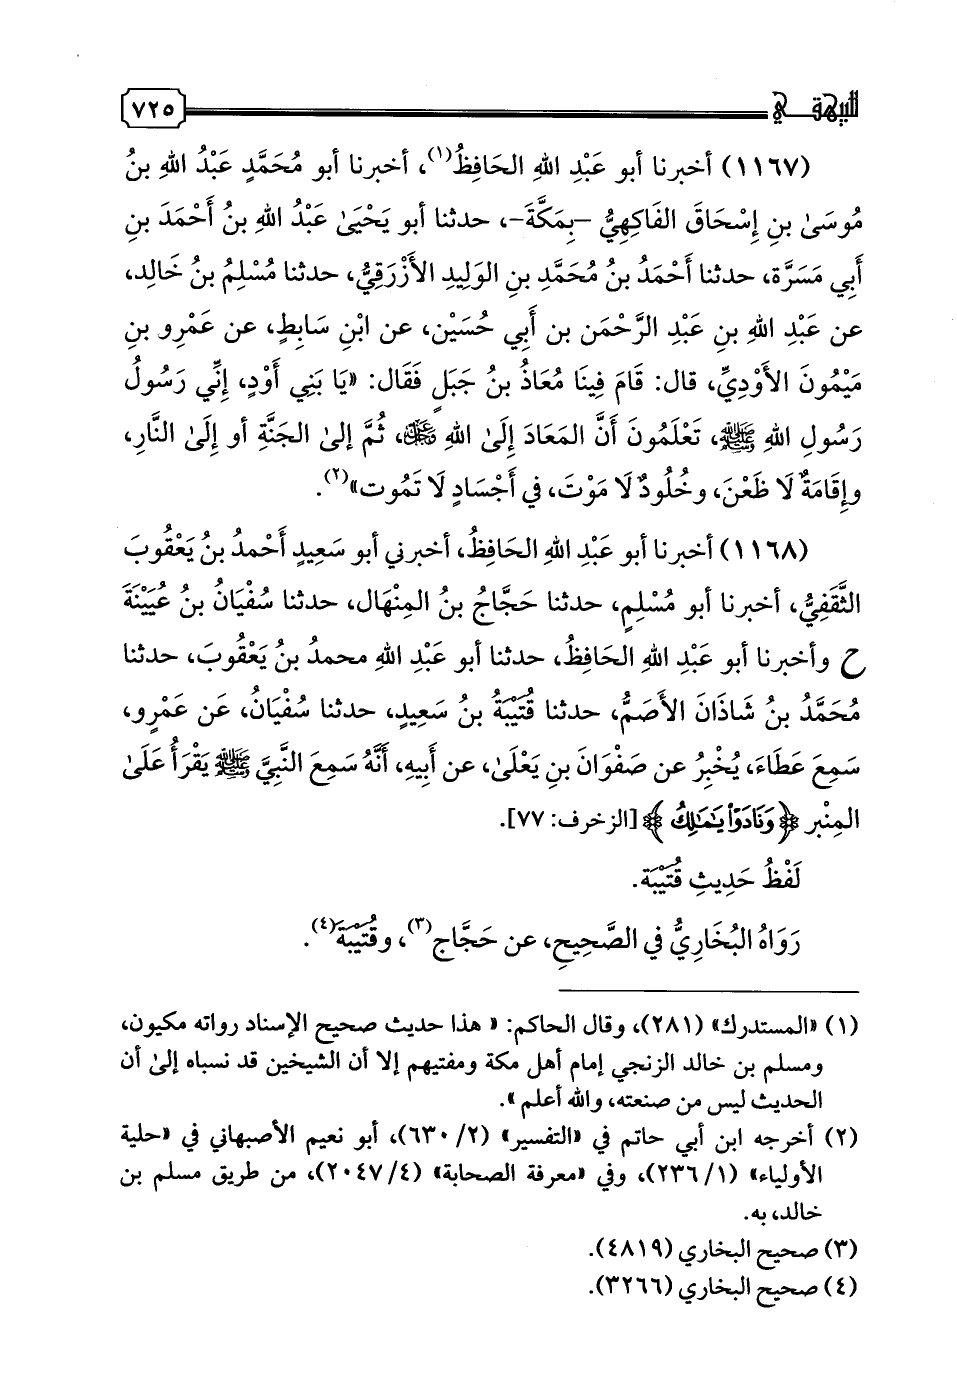 للبيهقي ٧٢٥
(١١٦٧) أخبرنا أبو عَبْدِ اللهِ الحَافِظُ(١)، أخبرنا أبو مُحَمَّدٍ عَبْدُ اللهِ بنُ
مُوسَىٰ بنِ إِسْحَاقَ الفَاكِهِيُّ -بِمَكَّةَ-، حدثنا أبو يَحْيَىٰ عَبْدُ اللهِ بنُ أَحْمَدَ بنِ
أَبِي مَسَرَّة، حدثنا أَحْمَدُ بنُ مُحَمَّدِ بنِ الوَلِيدِ الأَزْرَقِيُّ، حدثنا مُسْلِمُ بنُ خَالِد،
عن عَبْدِ اللهِ بنِ عَبْدِ الرَّحْمَن بن أَبِي حُسَيْن، عن ابْنِ سَابِطٍ، عن عَمْرِو بنِ
مَيْمُونَ الأَوْدِيِّ، قال: قَامَ فِينَا مُعَاذُ بنُ جَبَلٍ فَقَال: «يَا بَنِي أَوْدٍ، إِنِّي رَسُولُ
رَسُولِ اللهِ ﷺ، تَعْلَمُونَ أَنَّ المَعَادَ إِلَىٰ اللهِ ﷻ، ثُمَّ إلىٰ الجَنَّةِ أو إِلَىٰ النَّارِ،
وإِقَامَةٌ لَا ظَعْنَ، وخُلُودٌ لَا مَوْتَ، في أَجْسَادٍ لَا تَمُوت»(٢).
(١١٦٨) أخبرنا أبو عَبْدِ اللهِ الحَافِظُ، أخبرني أبو سَعِيدٍ أَحْمدُ بنُ يَعْقُوبَ
الثَّقَفِيُّ، أخبرنا أبو مُسْلِمٍ، حدثنا حَجَّاجُ بنُ المِنْهَال، حدثنا سُفْيَانُ بنُ عُيَيْنَةَ
ح وأخبرنا أبو عَبْدِ اللهِ الحَافِظُ، حدثنا أبو عَبْدِ اللهِ محمدُ بنُ يَعْقُوبَ، حدثنا
مُحَمَّدُ بنُ شَاذَانَ الأَصَمُّ، حدثنا قُتَيْبَةُ بنُ سَعِيدٍ، حدثنا سُفْيَانُ، عَن عَمْرٍو،
سَمِعَ عَطَاءَ، يُخْبِرُ عن صَفْوَانَ بنِ يَعْلَىٰ، عن أَبِيه، أَنَّهُ سَمِعَ النَّبِيَّ ﷺ يَقْرَأُ عَلَىٰ
المِنْبر ﴿وَنَادَوْاْ يَـٰمَـٰلِكُ﴾ [الزخرف: ٧٧].
لَفْظُ حَدِيثِ قُتَيْبَة.
رَوَاهُ البُخَارِيُّ في الصَّحِيحِ، عن حَجَّاج(٣)، وقُتَيْبَة(٤).
(١) «المستدرك» (٢٨١)، وقال الحاكم: « هذا حديث صحيح الإسناد رواته مكيون،
ومسلم بن خالد الزنجي إمام أهل مكة ومفتيهم إلا أن الشيخين قد نسباه إلىٰ أن
الحديث ليس من صنعته، والله أعلم ».
(٢) أخرجه ابن أبي حاتم في «التفسير» (٢/ ٦٣٠)، أبو نعيم الأصبهاني في «حلية
الأولياء» (١/ ٢٣٦)، وفي «معرفة الصحابة» (٤/ ٢٠٤٧)، من طريق مسلم بن
خالد، به.
(٣) صحيح البخاري (٤٨١٩).
(٤) صحيح البخاري (٣٢٦٦).